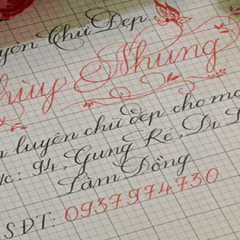 uyện Chữ Đẹp
Thùy Nhung
n luyện chữ đẹp cho mọ
/c: 94, Gung Ré, Di L
Lâm Đồng
SĐT: 0937974730